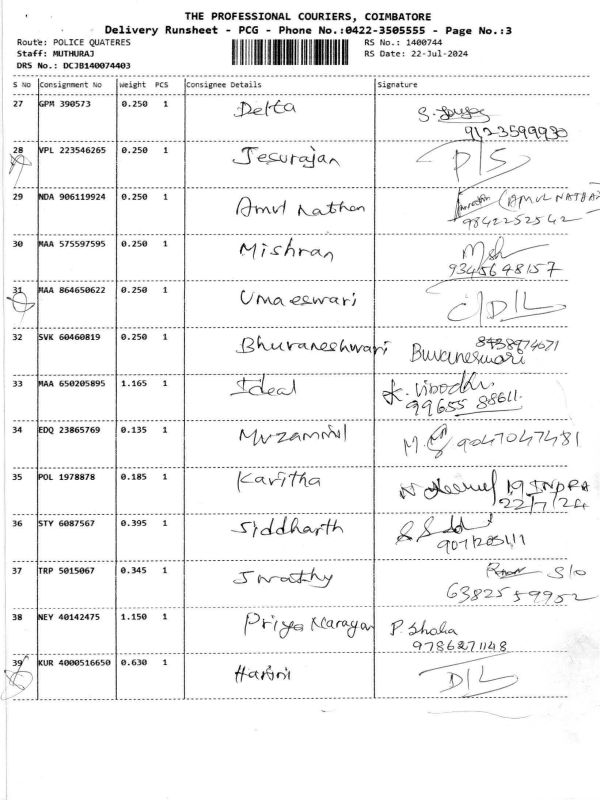 THE PROFESSIONAL COURIERS, COIMBATORE
Delivery Runsheet - PCG - Phone No.:0422-3505555 - Page No.:3
Route: POLICE QUATERES RS No.: 1400744
Staff: MUTHURAJ RS Date: 22-Jul-2024
DRS No.: DCJB140074403
S No Consignment No Weight PCS Consignee Details Signature
27 GPM 390573 0.250 1 Delta
9123599930
28 VPL 223546265 0.250 1 Jesurajan D/S
29 NDA 906119924 0.250 1 Amul Nathan (AMUL NATHAN)
9842252542
30 MAA 575597595 0.250 1 Mishran
9345648157
31 MAA 864650622 0.250 1 Umaeswari C/D/L
32 SVK 60460819 0.250 1 Bhuvaneshwari Buvaneswari
33 MAA 650205895 1.165 1 Ideal
99655 88611.
34 EDQ 23865769 0.135 1 Muzammil 9047047481
35 POL 1978878 0.185 1 Kavitha
22/7/24
36 STY 6087567 0.395 1 Siddharth
37 TRP 5015067 0.345 1 Swathy S/o
6382559952
38 NEY 40142475 1.150 1 Priya Narayan P. Shoba
9786271148
39 KUR 4000516650 0.630 1 Harini D/L